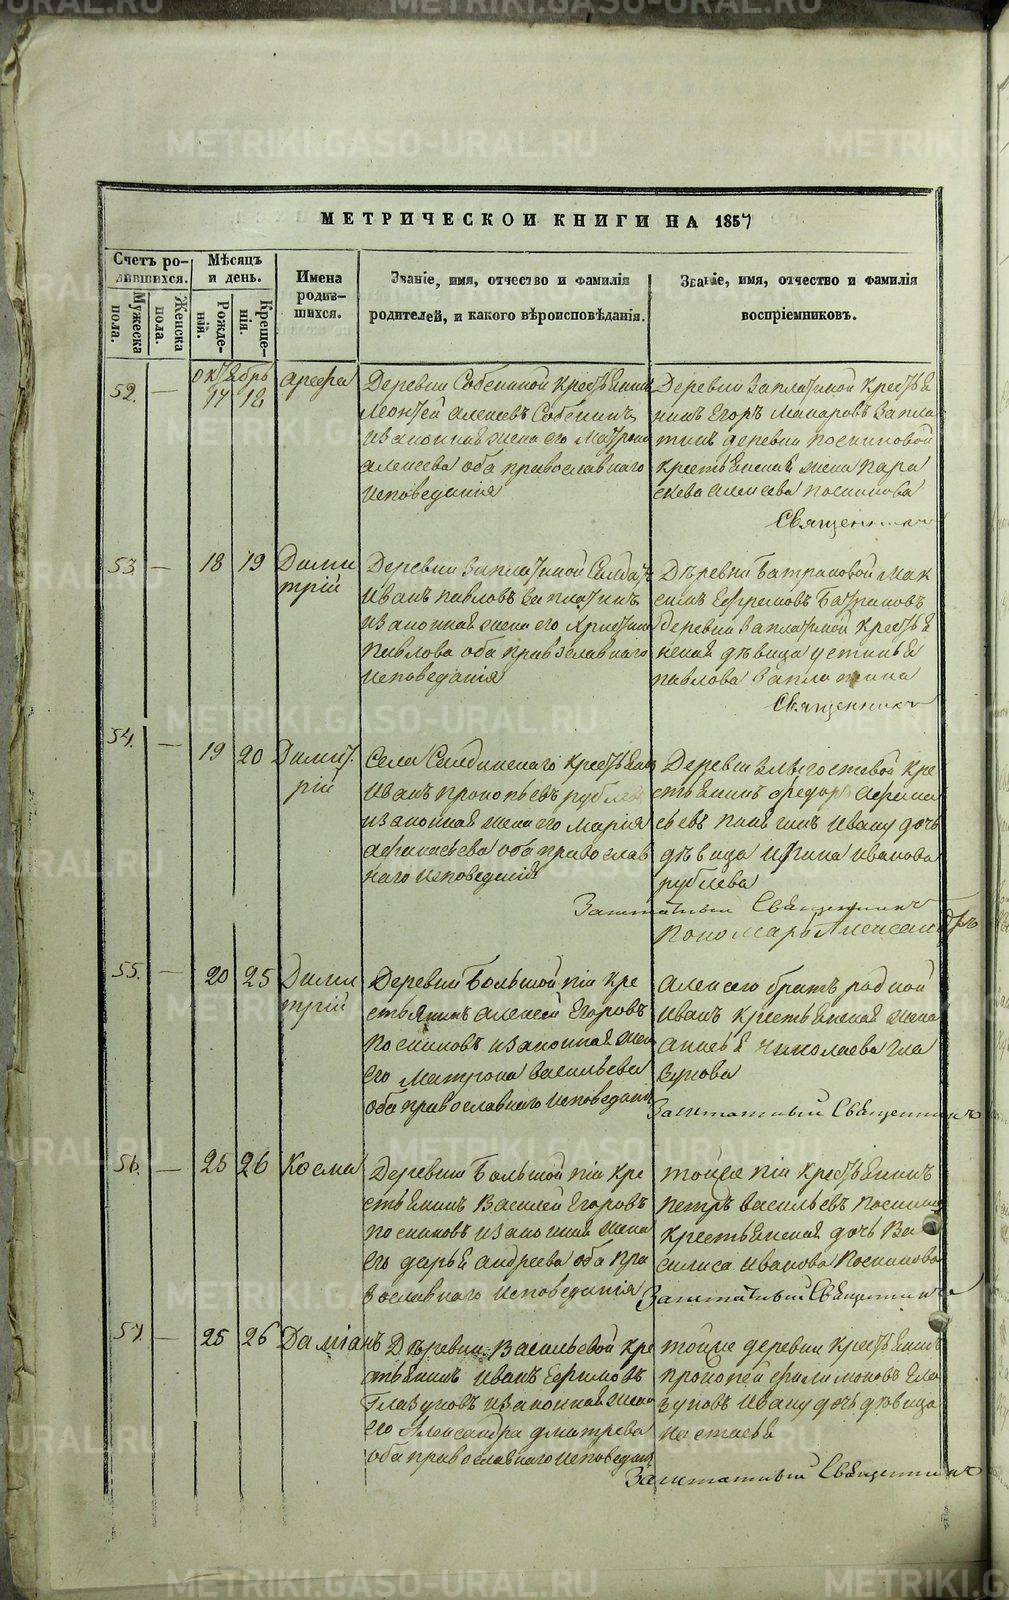 МЕТРИЧЕСКОЙ КНИГИ НА 1857
Счетъ ро-
дившихся.
Мѣсяцъ
и день.
Имена
родив-
шихся.
Званіе, имя, отчество и фамилія
родителей, и какого вѣроисповѣданія.
Званіе, имя, отчество и фамилія
воспріемниковъ.
Мужеска
пола.
Женска
пола.
Рожде-
ній.
Креще-
нія.
октябрь
52. — 17 18
Деревни Собениной Крестьянинъ
Леонтей Алексеевъ Собенинъ
и законная жена его Матрона
Алексеева оба православнаго
исповеданія
Деревни Заплатиной Кресьтья
нинъ Егоръ Макаровъ Запла
тинъ деревни Посниковой
крестьянская жена Пара
скева Алексеева Посникова
Священникъ
53. — 18 19
Дими
трій
Деревни Заплатиной Солдатъ
Иванъ Павловъ Заплатинъ
и законная жена его Христина
Павлова оба православнаго
исповеданія
Дѣревни Батраковой Мак
симъ Ефремовъ Батраковъ
деревни Заплатиной Кресьтья
нская дѣвица Устинья
Павлова Заплатина
Священникъ
54. — 19 20
Димит
рій
Села Салдинскаго Крестьянинъ
Иванъ Прокопьевъ Рублев
и законная жена его Мария
Афанасьева оба православ
наго исповеданія
стьянинъ Федоръ Афана
сьевъ Ивану дочь
дѣвица Ирина Иванова
рублева
Заштатный Священникъ
Пономарь Александръ
55. — 20 25
Дими
трій
Деревни Большой піи Кре
стьянинъ Алексей Егоровъ
Посниковъ и законная жена
его Матрона Васильева
оба православнаго исповедания
Алексего братъ родной
Иванъ Крестьянская жена
Анисья Николаева Гла
зунова
Заштатный Священникъ
56. — 25 26
Косма
Деревни Большой піи Кре
стьянинъ Василей Егоровъ
Посниковъ и законная жена
Его дарья Андреева оба пра
вославнаго исповеданія
тойже піи Крестьянинъ
Петръ Васильевъ Посников
Крестьянская дочь Ва
силиса Иванова Посникова
Заштатный Священникъ
57. — 25 26
Даміанъ
Дѣревни Васильевой Кре
стьянинъ Иванъ Ефимовъ
Глазуновъ и законная жена
его Александра дмитрева
оба православнаго исповедания
тойже деревни Крестьянинъ
Прокопей Филимоновъ Гла
зуновъ Ивану дочь дѣвица
Настасья
Заштатный Священникъ
METRIKI.GASO-URAL.RU